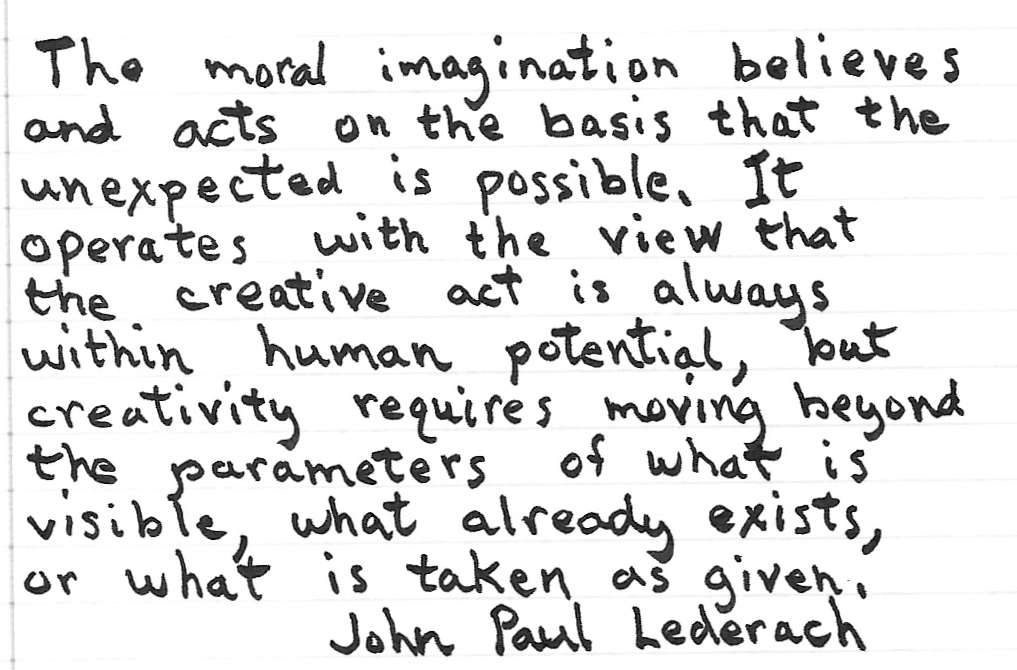 The moral imagination believes
and acts on the basis that the
unexpected is possible. It
operates with the view that
the creative act is always
within human potential, but
creativity requires moving beyond
the parameters of what is
visible, what already exists,
or what is taken as given.
John Paul Lederach